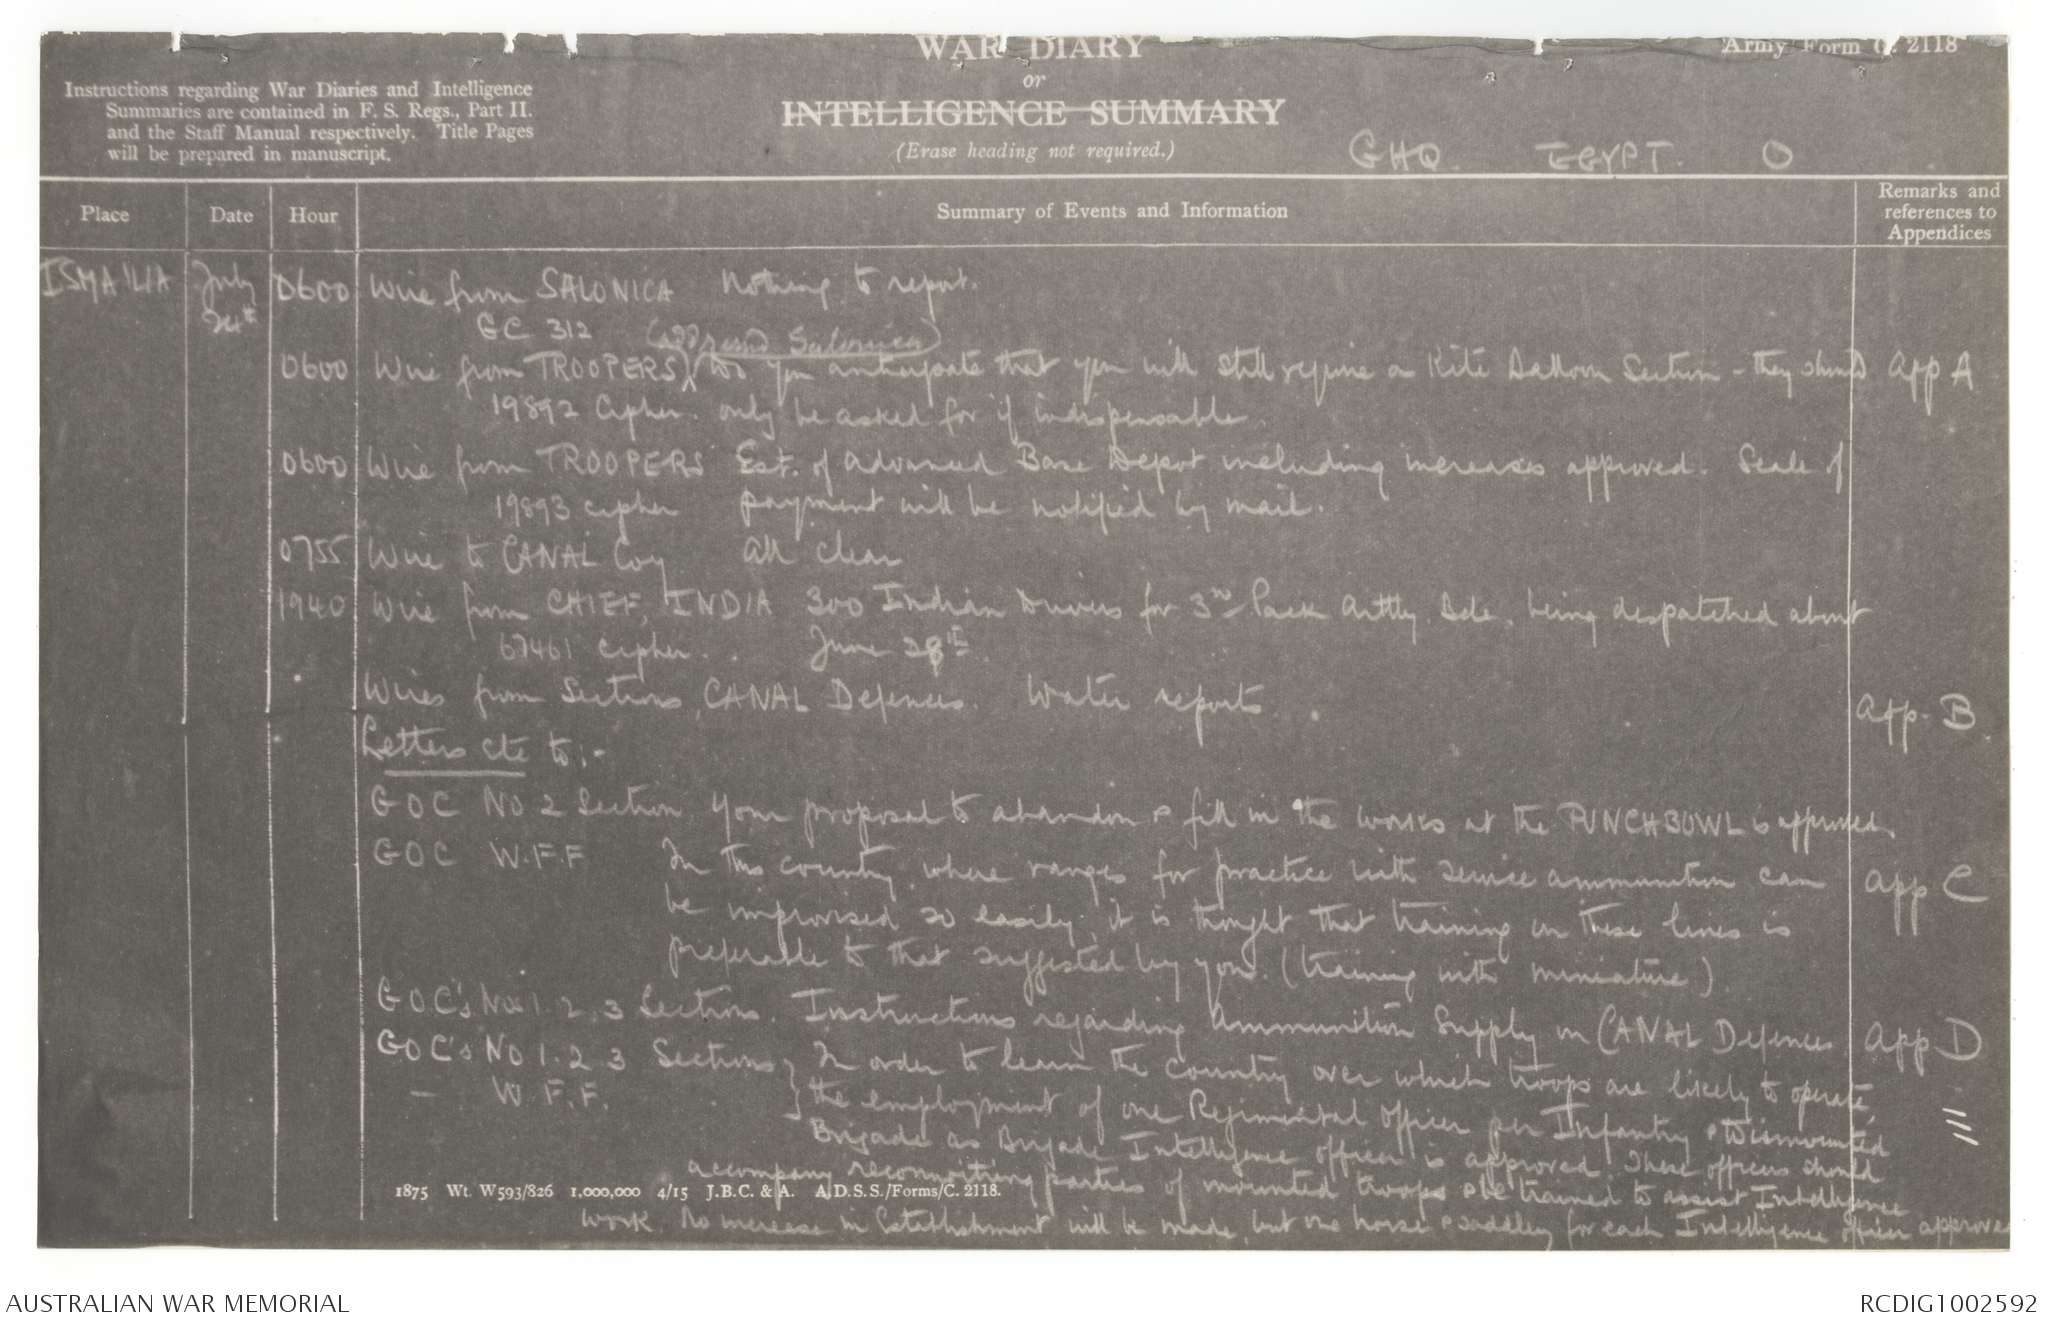 WAR DIARY
or
INTELLIGENCE SUMMARY
(Erase heading not required.)
Army Form C. 2118
Instructions regarding War Diaries and Intelligence
Summaries are contained in F. S. Regs., Part II.
and the Staff Manual respectively. Title Pages
will be prepared in manuscript.
GHQ. EGYPT. O
Place Date Hour Summary of Events and Information Remarks and references to Appendices
ISMAILIA July 24th 0600 Wire from SALONICA Nothing to report.
GC 312 (addressed Salonica)
0600 Wire from TROOPERS Do you anticipate that you will still require a Kite Balloon Section - they should App A
19892 Cipher. only be asked for if indispensable.
0600 Wire from TROOPERS Est. of Advanced Base Depot including increases approved. Scale of
19893 cipher payment will be notified by mail.
0755 Wire to CANAL Coy All clear
1940 Wire from CHIEF, INDIA 300 Indian Drivers for 3rd Pack Artlly. Bde. being despatched about
67461 cipher. June 28th.
Wires from Sections, CANAL Defences. Water reports App. B
Letters etc to:-
GOC No 2 Section Your proposal to abandon & fill in the works at the PUNCHBOWL is approved.
GOC W.F.F In this country where ranges for practice with service ammunition can App C
be improvised so easily, it is thought that training on these lines is
preferable to that suggested by you. (training with miniature)
GOC's Nos 1. 2. 3 Sections. Instructions regarding Ammunition Supply on CANAL Defences App D
GOC's No 1. 2. 3 Sections } In order to learn the country over which troops are likely to operate,
— W.F.F. } the employment of one Regimental officer per Infantry & Dismounted
Brigade as Brigade Intelligence officer is approved. These officers should
accompany reconnoitring parties of mounted troops & be trained to assist Intelligence
work. No increase in Establishment will be made, but one horse & saddlery for each Intelligence officer approved
1875 Wt. W593/826 1,000,000 4/15 J.B.C. & A. A.D.S.S./Forms/C. 2118.
AUSTRALIAN WAR MEMORIAL
RCDIG1002592